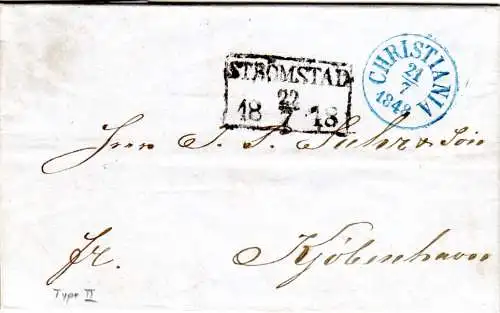 STRÖMSTAD
22
18 7 48
CHRISTIANIA
21
7
1848
Herrn J. P. Suhr & Son
fr. Kjöbenhavn
Type II